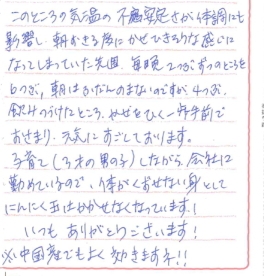 このところの気温の不安定さが体調にも
影響し朝おきる度にかぜひきそうな感じに
なってしまっていた先週、毎晩2つぶずつのところを
6つぶ、朝はふだんのまないのですが4つぶ、
飲みつづけたところ、かぜをひく一歩手前で
おさまり、元気にすごしております。
子育て(3才の男の子)しながら、会社に
勤めているので、体がくずせない身として
にんにく玉はかかせなくなっています!
いつもありがとうございます!
※中国産でもよく効きますネ!!